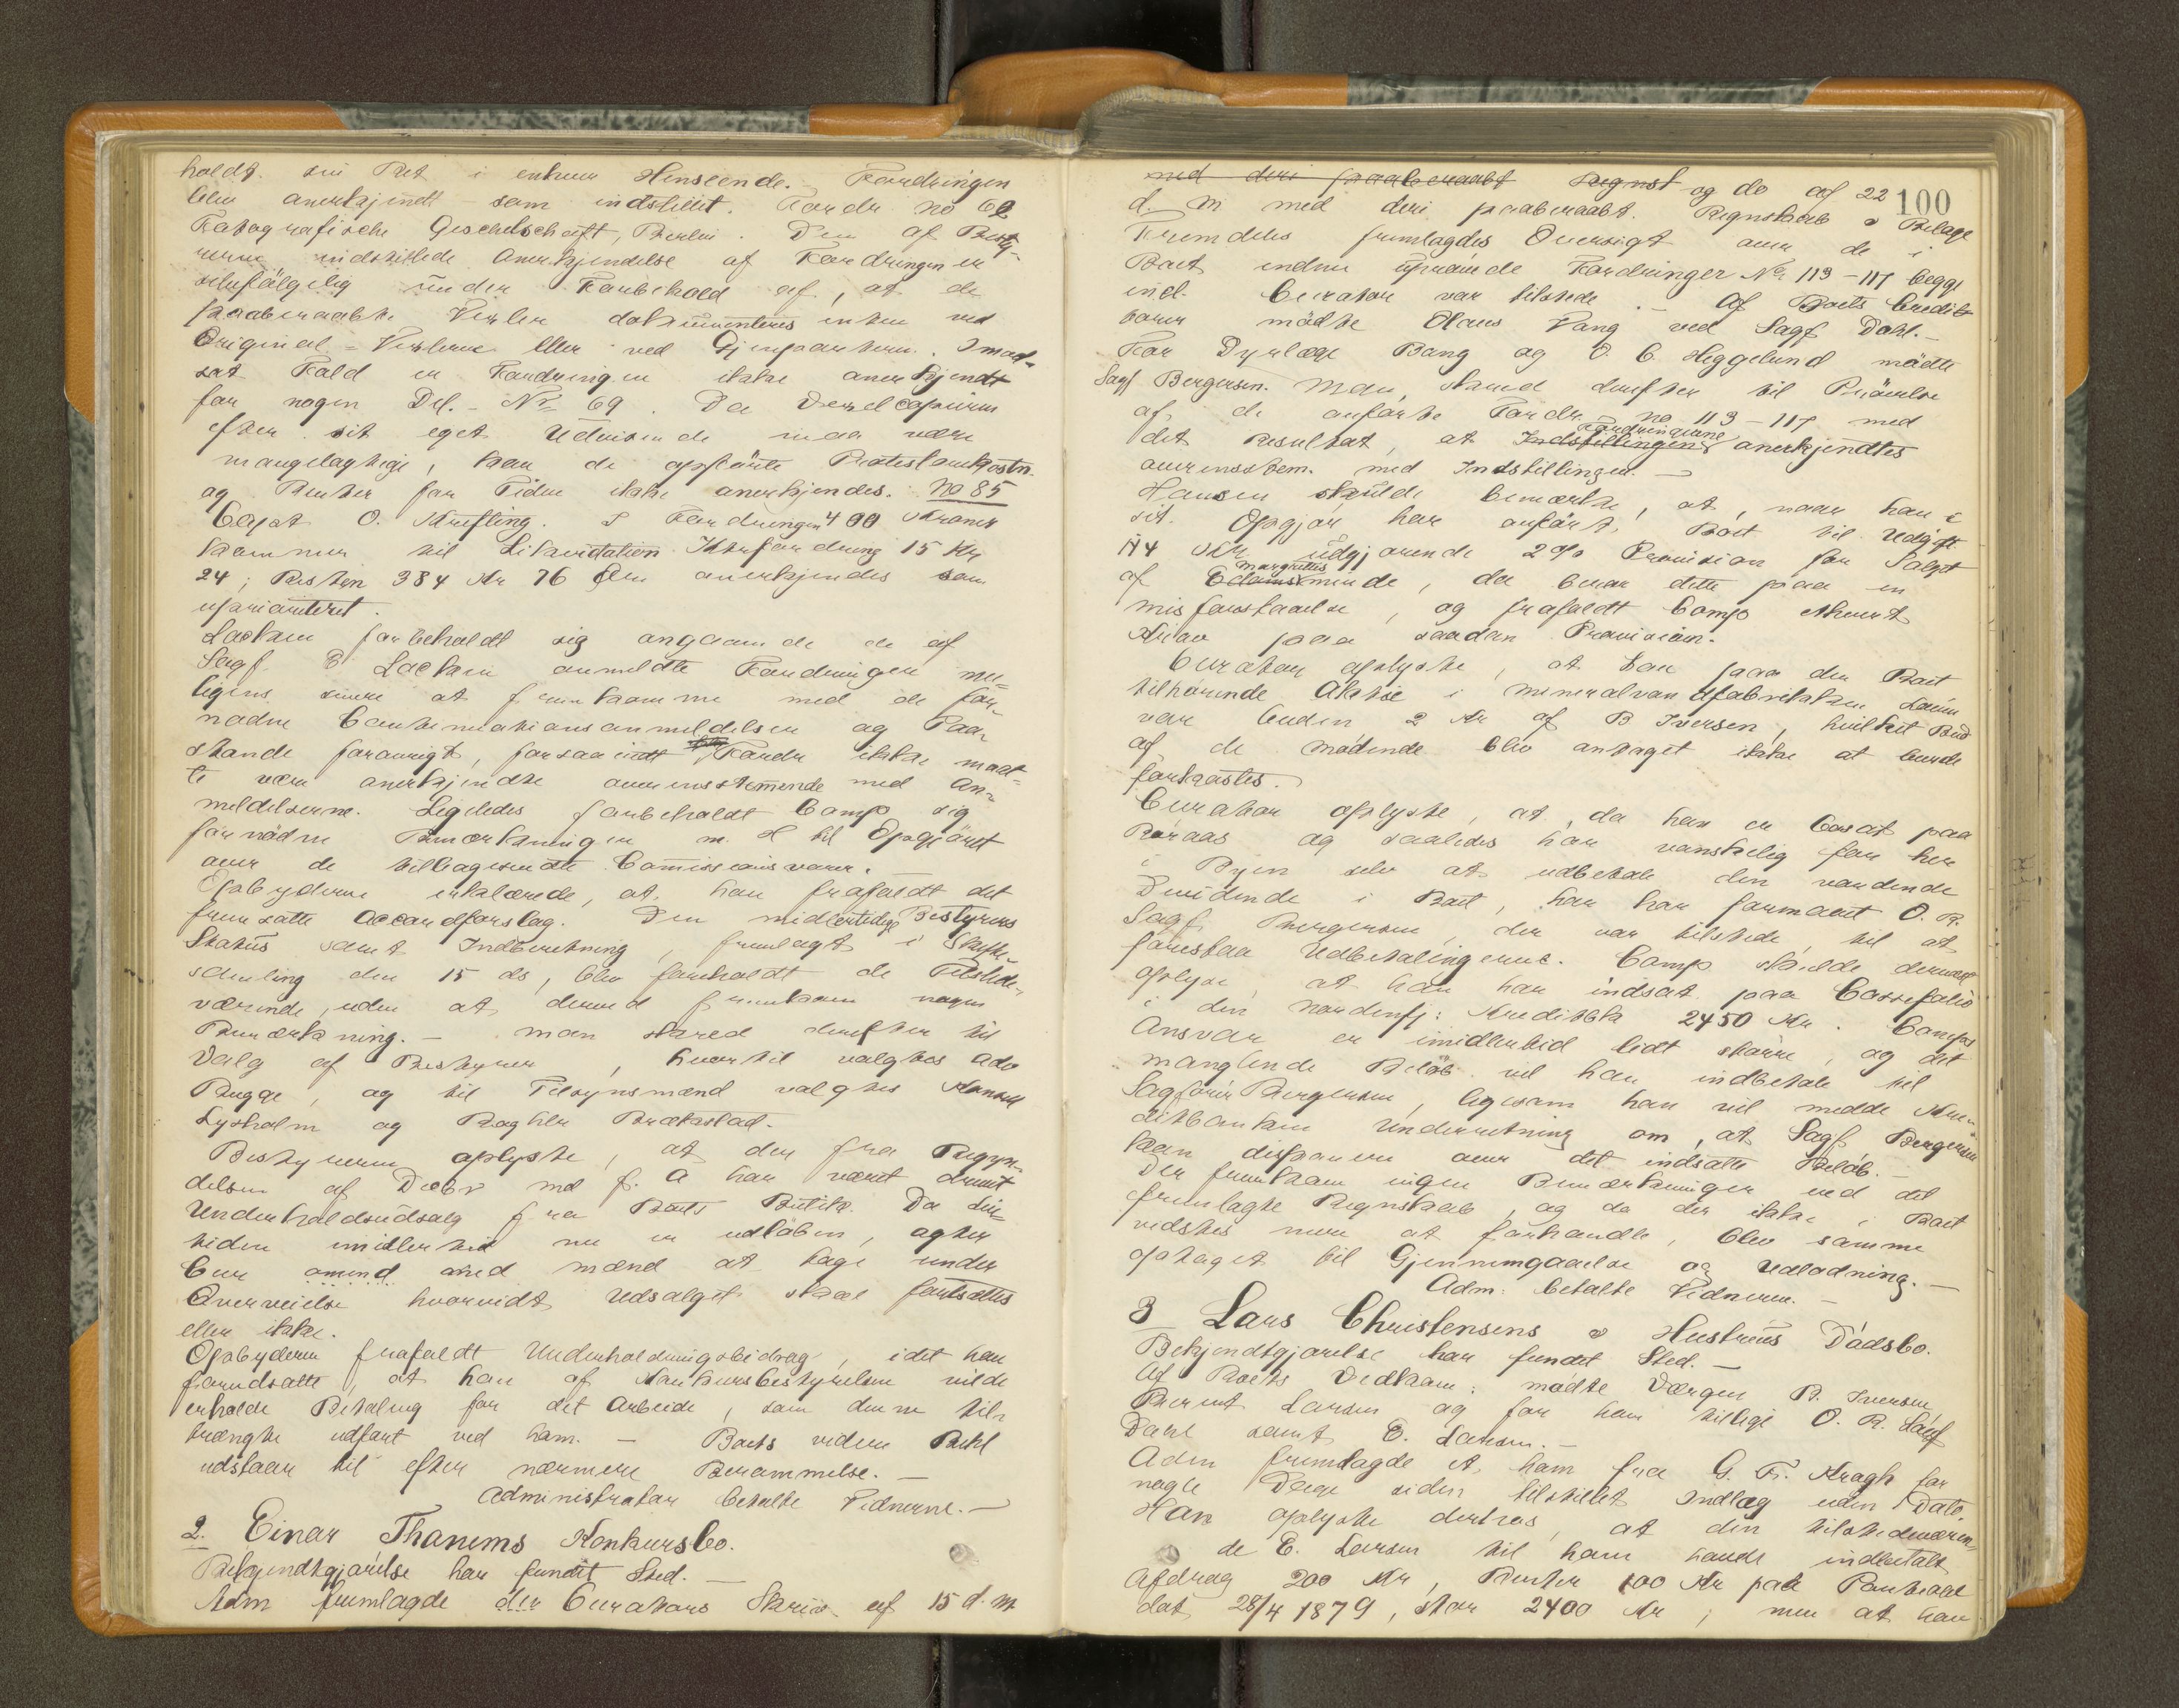 holdt sin Ret i enhver Henseende. Fordringen
blev anerkjendt som indstillet. Fordr. no 62
Fotografische Geschelschaft, Berlin. Den af Besty-
reren indstillede Anerkjendelse af Fordringen er
selvfølgelig under Forbehold af, at de
paaberaabte Vexler dokumenteres enten ved
Original-Vexlerne eller ved Gjenparterne. I mod-
sat Fald er Fordringen ikke anerkjendt
for nogen Del. - No 69. Da Vexelcopierne
efter sit eget Udvisende maa være
mangelagtige, kan de opførte Protestomkostn.
og Renter for Tiden ikke anerkjendes. No 85
Capt O. Krefting. I Fordringen 400 Kroner
kommer til Likvidation Modfordring 15 Kr
24; Resten 384 Kr 76 Øre anerkjendes som
uprioriteret.
Lockem forbeholdt sig angaaende de af
Sagf. B Lockem anmeldte Fordringer mu-
ligens senere at fremkomme med de for-
nødne Contramotionsanmeldelser og Paa-
stande forøvrigt, forsaavidt Fordr ikke maat-
te være anerkjendte overensstemmende med An-
meldelserne. Ligeledes forbeholdt Camp sig
fornødne Bemærkninger m. H til Opgjøret
over de tilbagesendte Comissionsvarer.
Opbyderen erklærede, at han frafaldt det
fremsatte Accordforslag. Den midlertidige Bestyrers
Status samt Indberetning, fremlagt i Skifte-
samling den 15 ds, blev foreholdt de Tilstede-
værende, uden at derved fremkom nogen
Bemærkning. - Man skred derefter til
Valg af Bestyrer, hvortil valgtes Adv
Bugge, og til Tilsynsmænd valgtes Konsul
Lysholm og Boghler Brækstad.
Bestyreren oplyste, at der fra Begyn-
delsen af Decbr md f. A har været drevet
Underholdsudsalg fra Boets Butik. Da
tiden imidlertid nu er udløben, agter
Cur omend med mænd at tage under
Overveielse hvorvidt Udsalget skal fortsættes
eller ikke.
Opbyderen frafaldt Underholdningsbidrag, idet han
forudsatte, at han af Konkursbestyrelsen vilde
erholde Betaling for det Arbeide, som denne til-
trængte udført ved ham. - Boets videre Behl
udstaar til efter nærmere Berammelse. -
Administrator betalte Vidnerne. -
2. Einar Thanems Konkursbo.
Bekjendtgjørelse har fundet Sted. -
Adm fremlagde der Curators Skriv. af 15 d. M
100
med deri paaberaabt Regnsk og do af 22
d. M med deri paaberaabt. Regnskab & Bilage
Fremdeles fremlagdes Oversigt over de i
Boet endnu uprøvede Fordringer No 113 - 117 begge
incl. Curator var tilstede. - Af Boets Credit-
torer mødte Olaus Vang ved Sagf Dahl. -
For Dyrlæge Bang og O. C. Heggelund mødte
Sagf Bergersen. Man skred derefter til Prøvelse
af de anførte Fordr. no 113 - 117 med
det Resultat, at Indstillingen Fordringerne anerkjendtes
overensstem. med Indstillingen. -
Hansen skulde bemærke, at, naar han i
sit Opgjør har anført, Boet til Udgift
114 Kr. udgjørende 2% Provision for Salget
af Edams Margrettesminde, da beror dette paa en
misforstaaelse, og frafaldt Camp ethvert
Krav paa saadan Provision.
Curator oplyste, at han paa den Boet
tilhørende Aktie i Mineralvandfabrikken Løven
var buden 2 Kr af B Iversen, hvilket Bud
af de mødende blev antaget ikke at burde
forkastes.
Curator oplyste, at, da han er bosat paa
Røraas og saaledes har vanskelig for her
i Byen selv at udbetale den vordende
Dividende i Boet, har han formaaet O. R.
Sagf Bergersen, der var tilstede, til at
forestaa Udbetalingerne. Camp skulde derhos
oplyse, at han har indsat paa Cassefolio
i den nordenfj: Kreditbk 2450 Kr. Camps
Ansvar er imidlertid lidt større, og det
manglende Beløb vil han indbetale til
Sagfører Bergersen, ligesom han vil meddele Kre-
ditbanken Underretning om, at Sagf Bergersen
kan disponere over det indsatte Beløb. -
Der fremkom ingen Bemærkninger ved det
fremlagte Regnskab, og da der ikke i Boet
vidstes mere at forhandle, blev samme
optaget til Gjennemgaaelse og Udlodning. -
Adm: betalte Vidnerne. -
3 Lars Christensens & Hustrues Dødsbo.
Bekjendtgjørelse har fundet Sted. -
Af Boets Vedkom: mødte Værgen B. Iversen
Berent Larsen og for ham tillige O. R. Sagf
Dahl samt E. Larsen. -
Adm fremlagde et ham fra G. Fr. Kragh for
nogle Dage siden tilstillet Indlæg uden Dato.
Han oplyste derhos, at den tilstedeværen-
de E. Larsen til ham havde indbetalt
Afdrag 200 Kr, Renter 100 Kr paa Panteobl
dat 28/4 1879, stor 2400 Kr; men at han